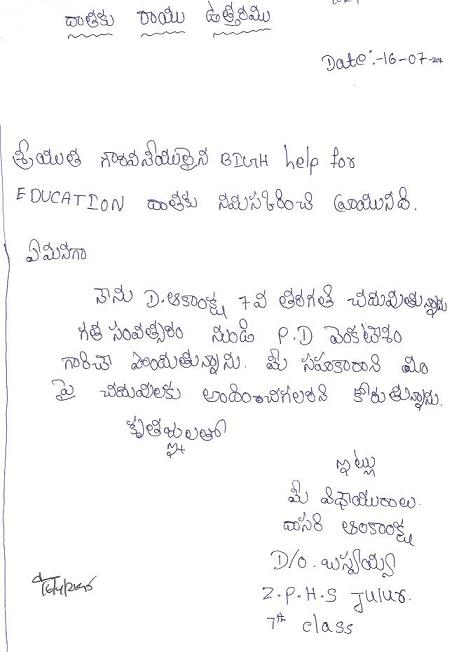 దాతకు రాయు ఉత్తరము
Date:-16-07-
శ్రీయుత గౌరవనీయులైన BIGH help for
EDUCATION దాతకు నమస్కరించి వ్రాయునది.
ఏమనగా
నాను D.ఆకాంక్ష 7వ తరగతి చదువుతున్నాడు
గత సంవత్సరం నుండి P.D వెంకటేశం
గారిచే పొందుతున్నాను. మీ సహకారాని మా
పై చదువులకు అందించగలరని కోరుతున్నాను.
కృతజ్ఞులతో
ఇట్లు
మీ విధాయురాలు.
దాసరి ఆంకాంక్ష
D/o. బస్వయ్య
Z.P.H.S Julur.
7th class